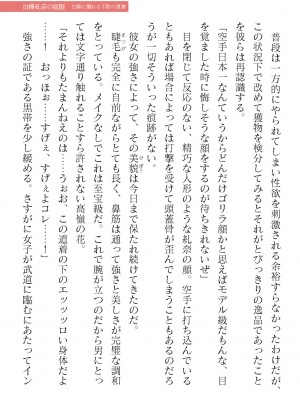 白樺紀奈の屈服　白濁に濡れる下着の凄惨
普段は一方的にやられてしまい性欲を刺激される余裕すらなかったわけだが、
この状況下で改めて獲物を検分してみるとそれがとびっきりの逸品であったこと
を彼らは再認識する。
「空手日本一なんていうからどんだけゴリラ顔かと思えばモデル級だもんな、目
覚ました時に悔しそうな顔をするのが待ちきれないぜ」
目を閉じて反応のない、精巧な人形のような紀奈の顔。空手に打ち込んでいる
ともあれば場合によっては打撃を受けて頭蓋骨が歪んでしまうこともあるのだろ
うが一切そういった痕跡がない。
彼女の強さによって、その美貌は今日まで保たれ続けてきたのだ。
睫毛も完全に自前ながらとても長く、鼻筋は通って強さと美しさが完璧な調和
をとっている。メイクなしでこれは至宝級だ。これで腕が立つのだから男にとっ
ては文字通り触れることすら許されない高嶺の花。
「それよりもたまんねえのは……うぉお、この道着の下のエッッッロい身体だよ
……！　おっほぉ……すげぇ、すげぇよコレ……」
強さの証である黒帯を少し緩める。さすがに女子が武道に臨むにあたってイン